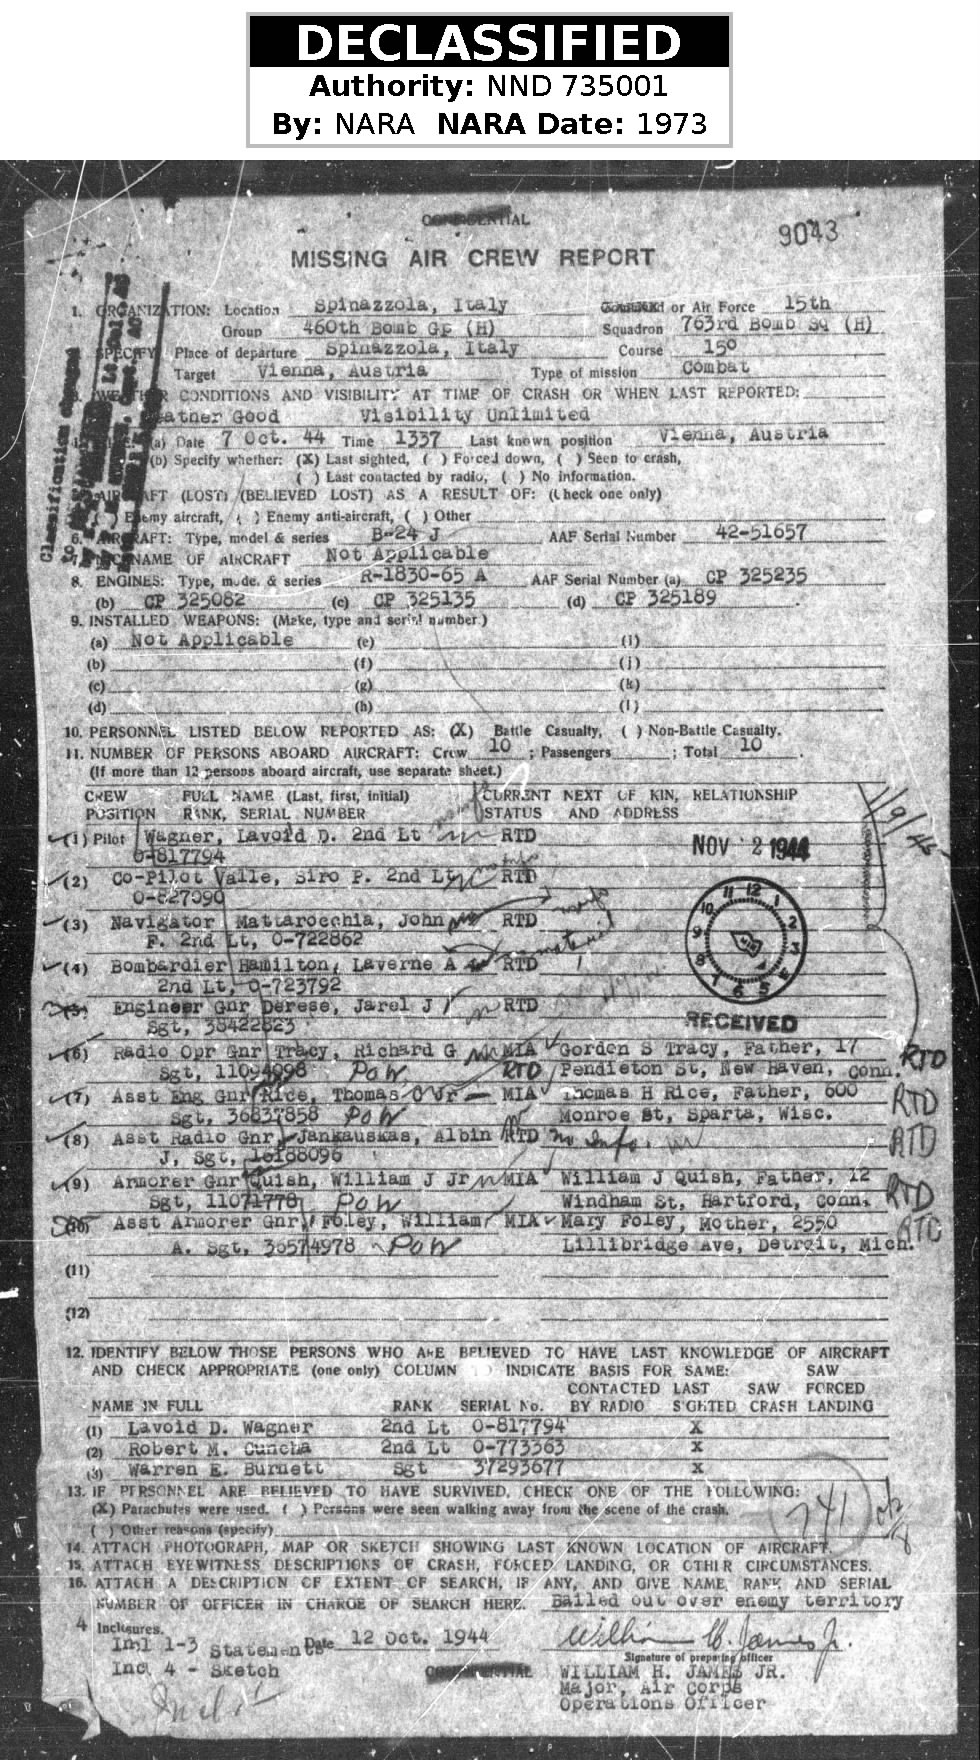 DECLASSIFIED
Authority: NND 735001
By: NARA NARA Date: 1973
CONFIDENTIAL
9043
MISSING AIR CREW REPORT
1. ORGANIZATION: Location Spinazzola, Italy or Air Force 15th
Group 460th Bomb Gp (H) Squadron 763rd Bomb Sq (H)
SPECIFY Place of departure Spinazzola, Italy Course 15°
Target Vienna, Austria Type of mission Combat
3. WEATHER CONDITIONS AND VISIBILITY AT TIME OF CRASH OR WHEN LAST REPORTED:
Weather Good Visibility Unlimited
(a) Date 7 Oct. 44 Time 1337 Last known position Vienna, Austria
(b) Specify whether: (X) Last sighted, ( ) Forced down, ( ) Seen to crash,
( ) Last contacted by radio, ( ) No information.
AIRCRAFT (LOST) (BELIEVED LOST) AS A RESULT OF: (Check one only)
( ) Enemy aircraft, ( ) Enemy anti-aircraft, ( ) Other
6. AIRCRAFT: Type, model & series B-24 J AAF Serial Number 42-51657
7. NICKNAME OF AIRCRAFT Not Applicable
8. ENGINES: Type, mode. & series R-1830-65 A AAF Serial Number (a) CP 325235
(b) CP 325082 (c) CP 325135 (d) CP 325189.
9. INSTALLED WEAPONS: (Make, type and serial number)
(a) Not Applicable (e) (i)
(b) (f) (j)
(c) (g) (k)
(d) (h) (l)
10. PERSONNEL LISTED BELOW REPORTED AS: (X) Battle Casualty, ( ) Non-Battle Casualty.
11. NUMBER OF PERSONS ABOARD AIRCRAFT: Crew 10 ; Passengers ; Total 10 .
(If more than 12 persons aboard aircraft, use separate sheet.)
CREW FULL NAME (Last, first, initial) CURRENT NEXT OF KIN, RELATIONSHIP
POSITION RANK, SERIAL NUMBER STATUS AND ADDRESS
(1) Pilot Wagner, Lavoid D. 2nd Lt RTD
O-817794
NOV 2 1944
(2) Co-Pilot Valle, Siro P. 2nd Lt RTD
O-827090
(3) Navigator Mattarocchia, John RTD
F. 2nd Lt, O-722862
(4) Bombardier Hamilton, Laverne A RTD
2nd Lt, O-723792
(5) Engineer Gnr Derese, Jarel J RTD
Sgt, 38422823
RECEIVED
(6) Radio Opr Gnr Tracy, Richard G MIA Gorden S Tracy, Father, 17 RTD
Sgt, 11094998 POW RTD Pendleton St, New Haven, Conn.
(7) Asst Eng Gnr Rice, Thomas O Jr MIA Thomas H Rice, Father, 600 RTD
Sgt, 36837858 POW Monroe St, Sparta, Wisc.
(8) Asst Radio Gnr Jankauskas, Albin RTD No Info. RTD
J, Sgt, 16188096
(9) Armorer Gnr Quish, William J Jr MIA William J Quish, Father, 12 RTD
Sgt, 11071778 POW Windham St, Hartford, Conn.
Asst Armorer Gnr Foley, William MIA Mary Foley, Mother, 2550 RTD
A. Sgt, 36574978 POW Lillibridge Ave, Detroit, Mich.
(11)
(12)
12. IDENTIFY BELOW THOSE PERSONS WHO ARE BELIEVED TO HAVE LAST KNOWLEDGE OF AIRCRAFT
AND CHECK APPROPRIATE (one only) COLUMN INDICATE BASIS FOR SAME: SAW
CONTACTED LAST SAW FORCED
NAME IN FULL RANK SERIAL No. BY RADIO SIGHTED CRASH LANDING
(1) Lavoid D. Wagner 2nd Lt O-817794 X
(2) Robert M. Cuncha 2nd Lt O-773363 X
(3) Warren E. Burnett Sgt 37293677 X
13. IF PERSONNEL ARE BELIEVED TO HAVE SURVIVED, CHECK ONE OF THE FOLLOWING:
(X) Parachutes were used. ( ) Persons were seen walking away from the scene of the crash.
( ) Other reasons (specify)
741
14. ATTACH PHOTOGRAPH, MAP OR SKETCH SHOWING LAST KNOWN LOCATION OF AIRCRAFT.
15. ATTACH EYEWITNESS DESCRIPTIONS OF CRASH, FORCED LANDING, OR OTHER CIRCUMSTANCES.
16. ATTACH A DESCRIPTION OF EXTENT OF SEARCH, IF ANY, AND GIVE NAME, RANK AND SERIAL
NUMBER OF OFFICER IN CHARGE OF SEARCH HERE. Bailed out over enemy territory
4 Inclosures.
Inl 1-3 Statements Date 12 Oct. 1944 William H. James Jr.
Signature of preparing officer
Inc. 4 - Sketch CONFIDENTIAL WILLIAM H. JAMES JR.
Major, Air Corps
Operations Officer